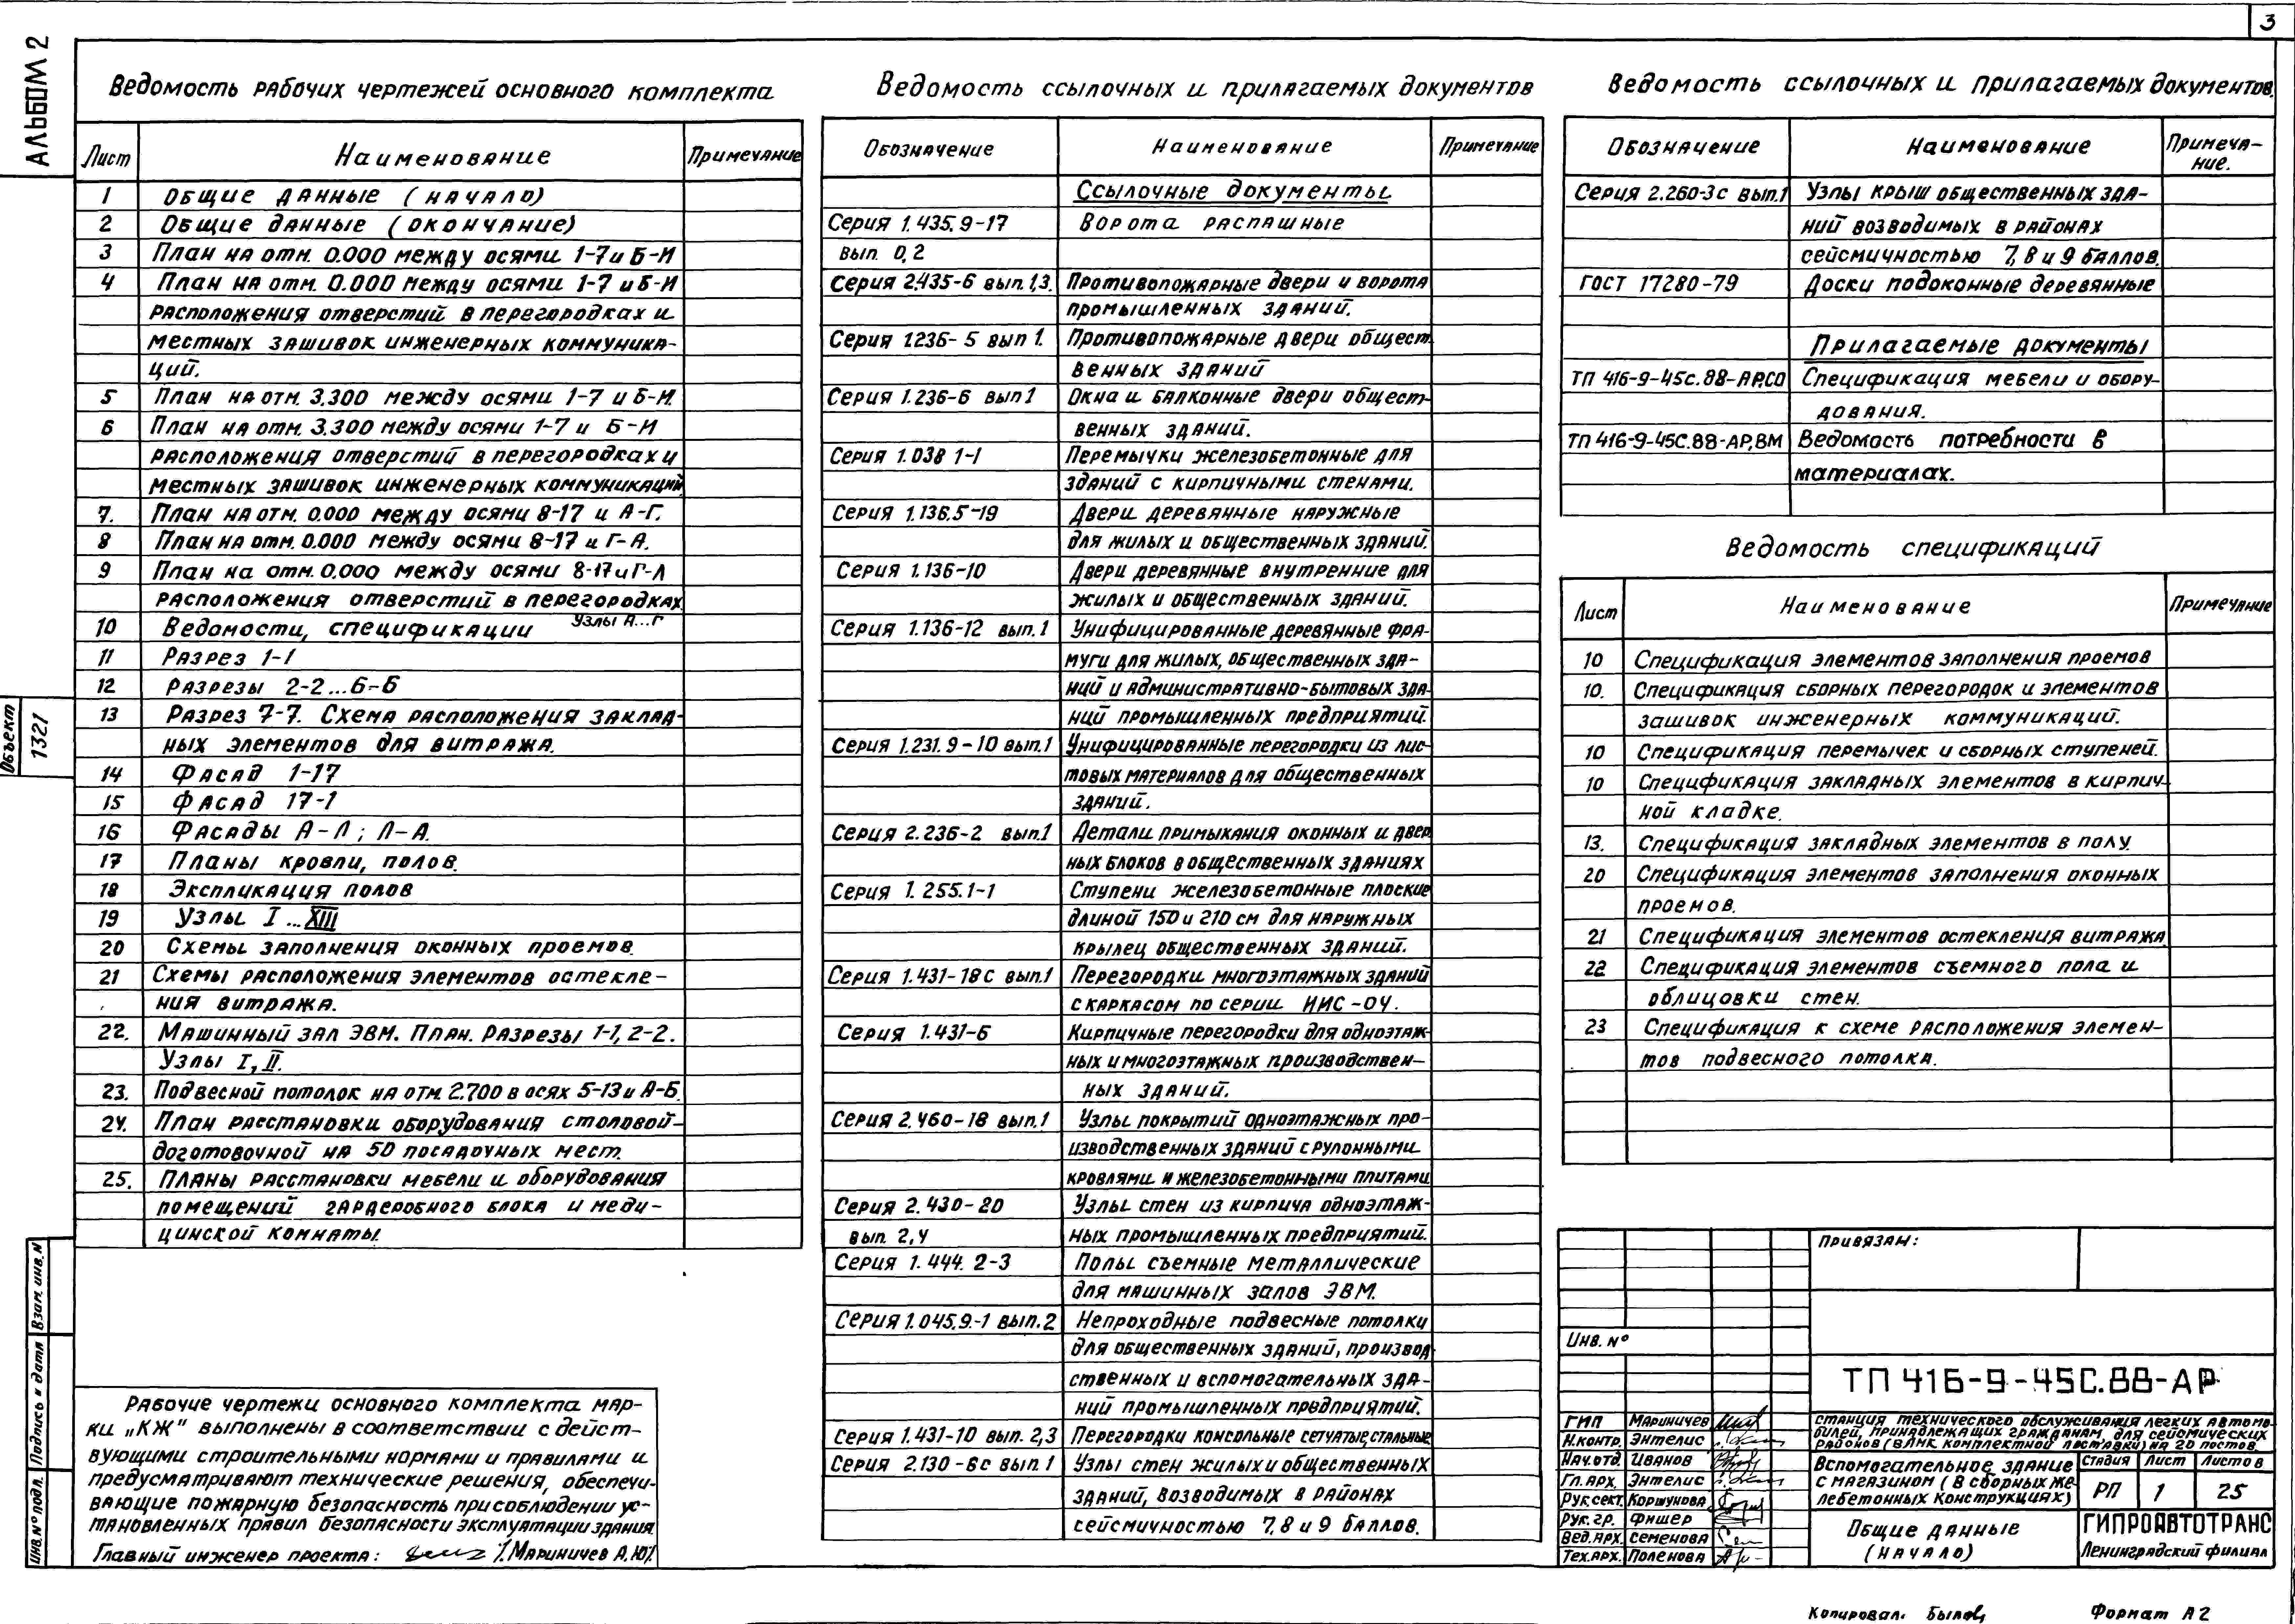 3
АЛЬБОМ 2
Ведомость рабочих чертежей основного комплекта
Лист Наименование Примечание
1 Общие данные (начало)
2 Общие данные (окончание)
3 План на отм. 0.000 между осями 1-7 и Б-И
4 План на отм. 0.000 между осями 1-7 и Б-И
расположения отверстий в перегородках и
местных зашивок инженерных коммуника-
ций.
5 План на отм. 3.300 между осями 1-7 и Б-И.
6 План на отм. 3.300 между осями 1-7 и Б-И
расположения отверстий в перегородках и
местных зашивок инженерных коммуникаций
7. План на отм. 0.000 между осями 8-17 и А-Г.
8 План на отм. 0.000 между осями 8-17 и Г-Л.
9 План на отм. 0.000 между осями 8-17 и Г-Л
расположения отверстий в перегородках
10 Ведомости, спецификации Узлы А...Г
11 Разрез 1-1
12 Разрезы 2-2...6-6
13 Разрез 7-7. Схема расположения заклад-
ных элементов для витража.
14 Фасад 1-17
15 Фасад 17-1
16 Фасады А-Л; Л-А.
17 Планы кровли, полов.
18 Экспликация полов
19 Узлы I...XIII
20 Схемы заполнения оконных проемов.
21 Схемы расположения элементов остекле-
ния витража.
22. Машинный зал ЭВМ. План. Разрезы 1-1, 2-2.
Узлы I, II.
23. Подвесной потолок на отм. 2.700 в осях 5-13 и А-Б.
24. План расстановки оборудования столовой-
доготовочной на 50 посадочных мест.
25. Планы расстановки мебели и оборудования
помещений гардеробного блока и меди-
цинской комнаты.
Рабочие чертежи основного комплекта мар-
ки „КЖ" выполнены в соответствии с дейст-
вующими строительными нормами и правилами и
предусматривают технические решения, обеспечи-
вающие пожарную безопасность при соблюдении ус-
тановленных правил безопасности эксплуатации здания.
Главный инженер проекта: /Мариничев А.Ю/.
Объект
1321
Взам. инв. N
Подпись и дата
Инв. № подл.
Ведомость ссылочных и прилагаемых документов
Обозначение Наименование Примечание
Ссылочные документы
Серия 1.435.9-17 Ворота распашные
вып. 0,2
Серия 2.435-6 вып. 1,3. Противопожарные двери и ворота
промышленных зданий.
Серия 1.236-5 вып 1. Противопожарные двери общест
венных зданий
Серия 1.236-6 вып 1 Окна и балконные двери общест-
венных зданий.
Серия 1.038 1-1 Перемычки железобетонные для
зданий с кирпичными стенами.
Серия 1.136.5-19 Двери деревянные наружные
для жилых и общественных зданий.
Серия 1.136-10 Двери деревянные внутренние для
жилых и общественных зданий.
Серия 1.136-12 вып. 1 Унифицированные деревянные фра-
муги для жилых, общественных зда-
ний и административно-бытовых зда-
ний промышленных предприятий.
Серия 1.231.9-10 вып. 1 Унифицированные перегородки из лис-
товых материалов для общественных
зданий.
Серия 2.236-2 вып. 1 Детали примыкания оконных и двер
ных блоков в общественных зданиях
Серия 1.255.1-1 Ступени железобетонные плоские
длиной 150 и 210 см для наружных
крылец общественных зданий.
Серия 1.431-18с вып. 1 Перегородки многоэтажных зданий
с каркасом по серии ИИС-04.
Серия 1.431-6 Кирпичные перегородки для одноэтаж-
ных и многоэтажных производствен-
ных зданий.
Серия 2.460-18 вып. 1 Узлы покрытий одноэтажных про-
изводственных зданий с рулонными
кровлями и железобетонными плитами
Серия 2.430-20 Узлы стен из кирпича одноэтаж-
вып. 2,4 ных промышленных предприятий.
Серия 1.444.2-3 Полы съемные металлические
для машинных залов ЭВМ.
Серия 1.045.9-1 вып. 2 Непроходные подвесные потолки
для общественных зданий, производ-
ственных и вспомогательных зда-
ний промышленных предприятий.
Серия 1.431-10 вып. 2,3 Перегородки консольные сетчатые, стальные
Серия 2.130-6с вып. 1 Узлы стен жилых и общественных
зданий, возводимых в районах
сейсмичностью 7,8 и 9 баллов.
Ведомость ссылочных и прилагаемых документов.
Обозначение Наименование Примеча-
ние.
Серия 2.260-3с вып. 1 Узлы крыш общественных зда-
ний возводимых в районах
сейсмичностью 7,8 и 9 баллов.
ГОСТ 17280-79 Доски подоконные деревянные
Прилагаемые документы
ТП 416-9-45с.88-АР.СО Спецификация мебели и обору-
дования.
ТП 416-9-45С.88-АР,ВМ Ведомость потребности в
материалах.
Ведомость спецификаций
Лист Наименование Примечание
10 Спецификация элементов заполнения проемов
10. Спецификация сборных перегородок и элементов
зашивок инженерных коммуникаций.
10 Спецификация перемычек и сборных ступеней.
10 Спецификация закладных элементов в кирпич-
ной кладке.
13. Спецификация закладных элементов в полу
20 Спецификация элементов заполнения оконных
проемов.
21 Спецификация элементов остекления витража
22 Спецификация элементов съемного пола и
облицовки стен.
23 Спецификация к схеме расположения элемен-
тов подвесного потолка.
Привязан:
Инв. №
ТП 416-9-45С.88-АР
ГИП Мариничев
Н.контр. Энтелис
Нач.отд. Иванов
Гл.арх. Энтелис
Рук.сект. Коршунова
Рук.гр. Фишер
Вед.арх. Семенова
Тех.арх. Поленова
Станция технического обслуживания легких автомо-
билей, принадлежащих гражданам, для сейсмических
районов (БЛМК комплектной поставки) на 20 постов.
Вспомогательное здание
с магазином (в сборных же-
лебетонных конструкциях)
Стадия Лист Листов
РП 1 25
Общие данные
(начало)
ГИПРОАВТОТРАНС
Ленинградский филиал
Копировал. Формат А2